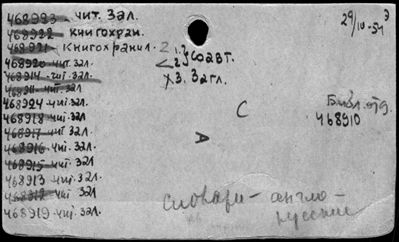 468923 - чит. зал.
468922 - книгохран.
468921 - книгохранил.
468920 - чит. зал.
468914 - чит. зал.
468911 - чит. зал
468924 - чит. зал.
468918 - чит. зал
468917 - чит. зал
468916 - чит. зал.
468915 - чит. зал
468913 - чит. зал
468912 - чит. зал
468919 - чит. зал.
2 1. 
2. Соавт.
3. Загл.
29/IV-54 Э
С
А
Библ. отд.
468910
Словари - англо -
русские